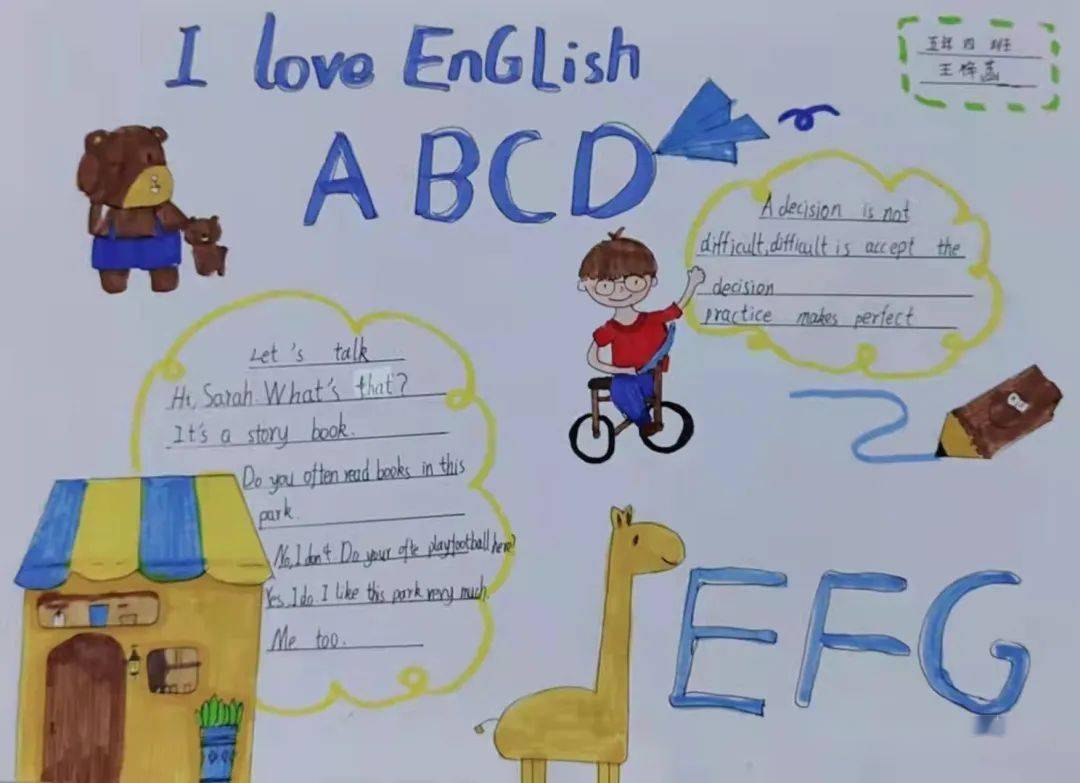 I love EnGLish
ABCD
五年 四 班
王梓
A decision is not
difficult,difficult is accept the
decision
practice makes perfect
Let's talk
Hi, Sarah. What's that?
It's a story book.
Do you often read books in this
park.
No, I don't Do your ofte play football here?
Yes, I do. I like this park very much.
Me too.
EFG